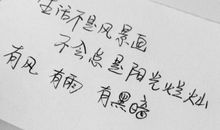 生活不是风景画
不会总是阳光烂灿
有风 有雨 有黑暗